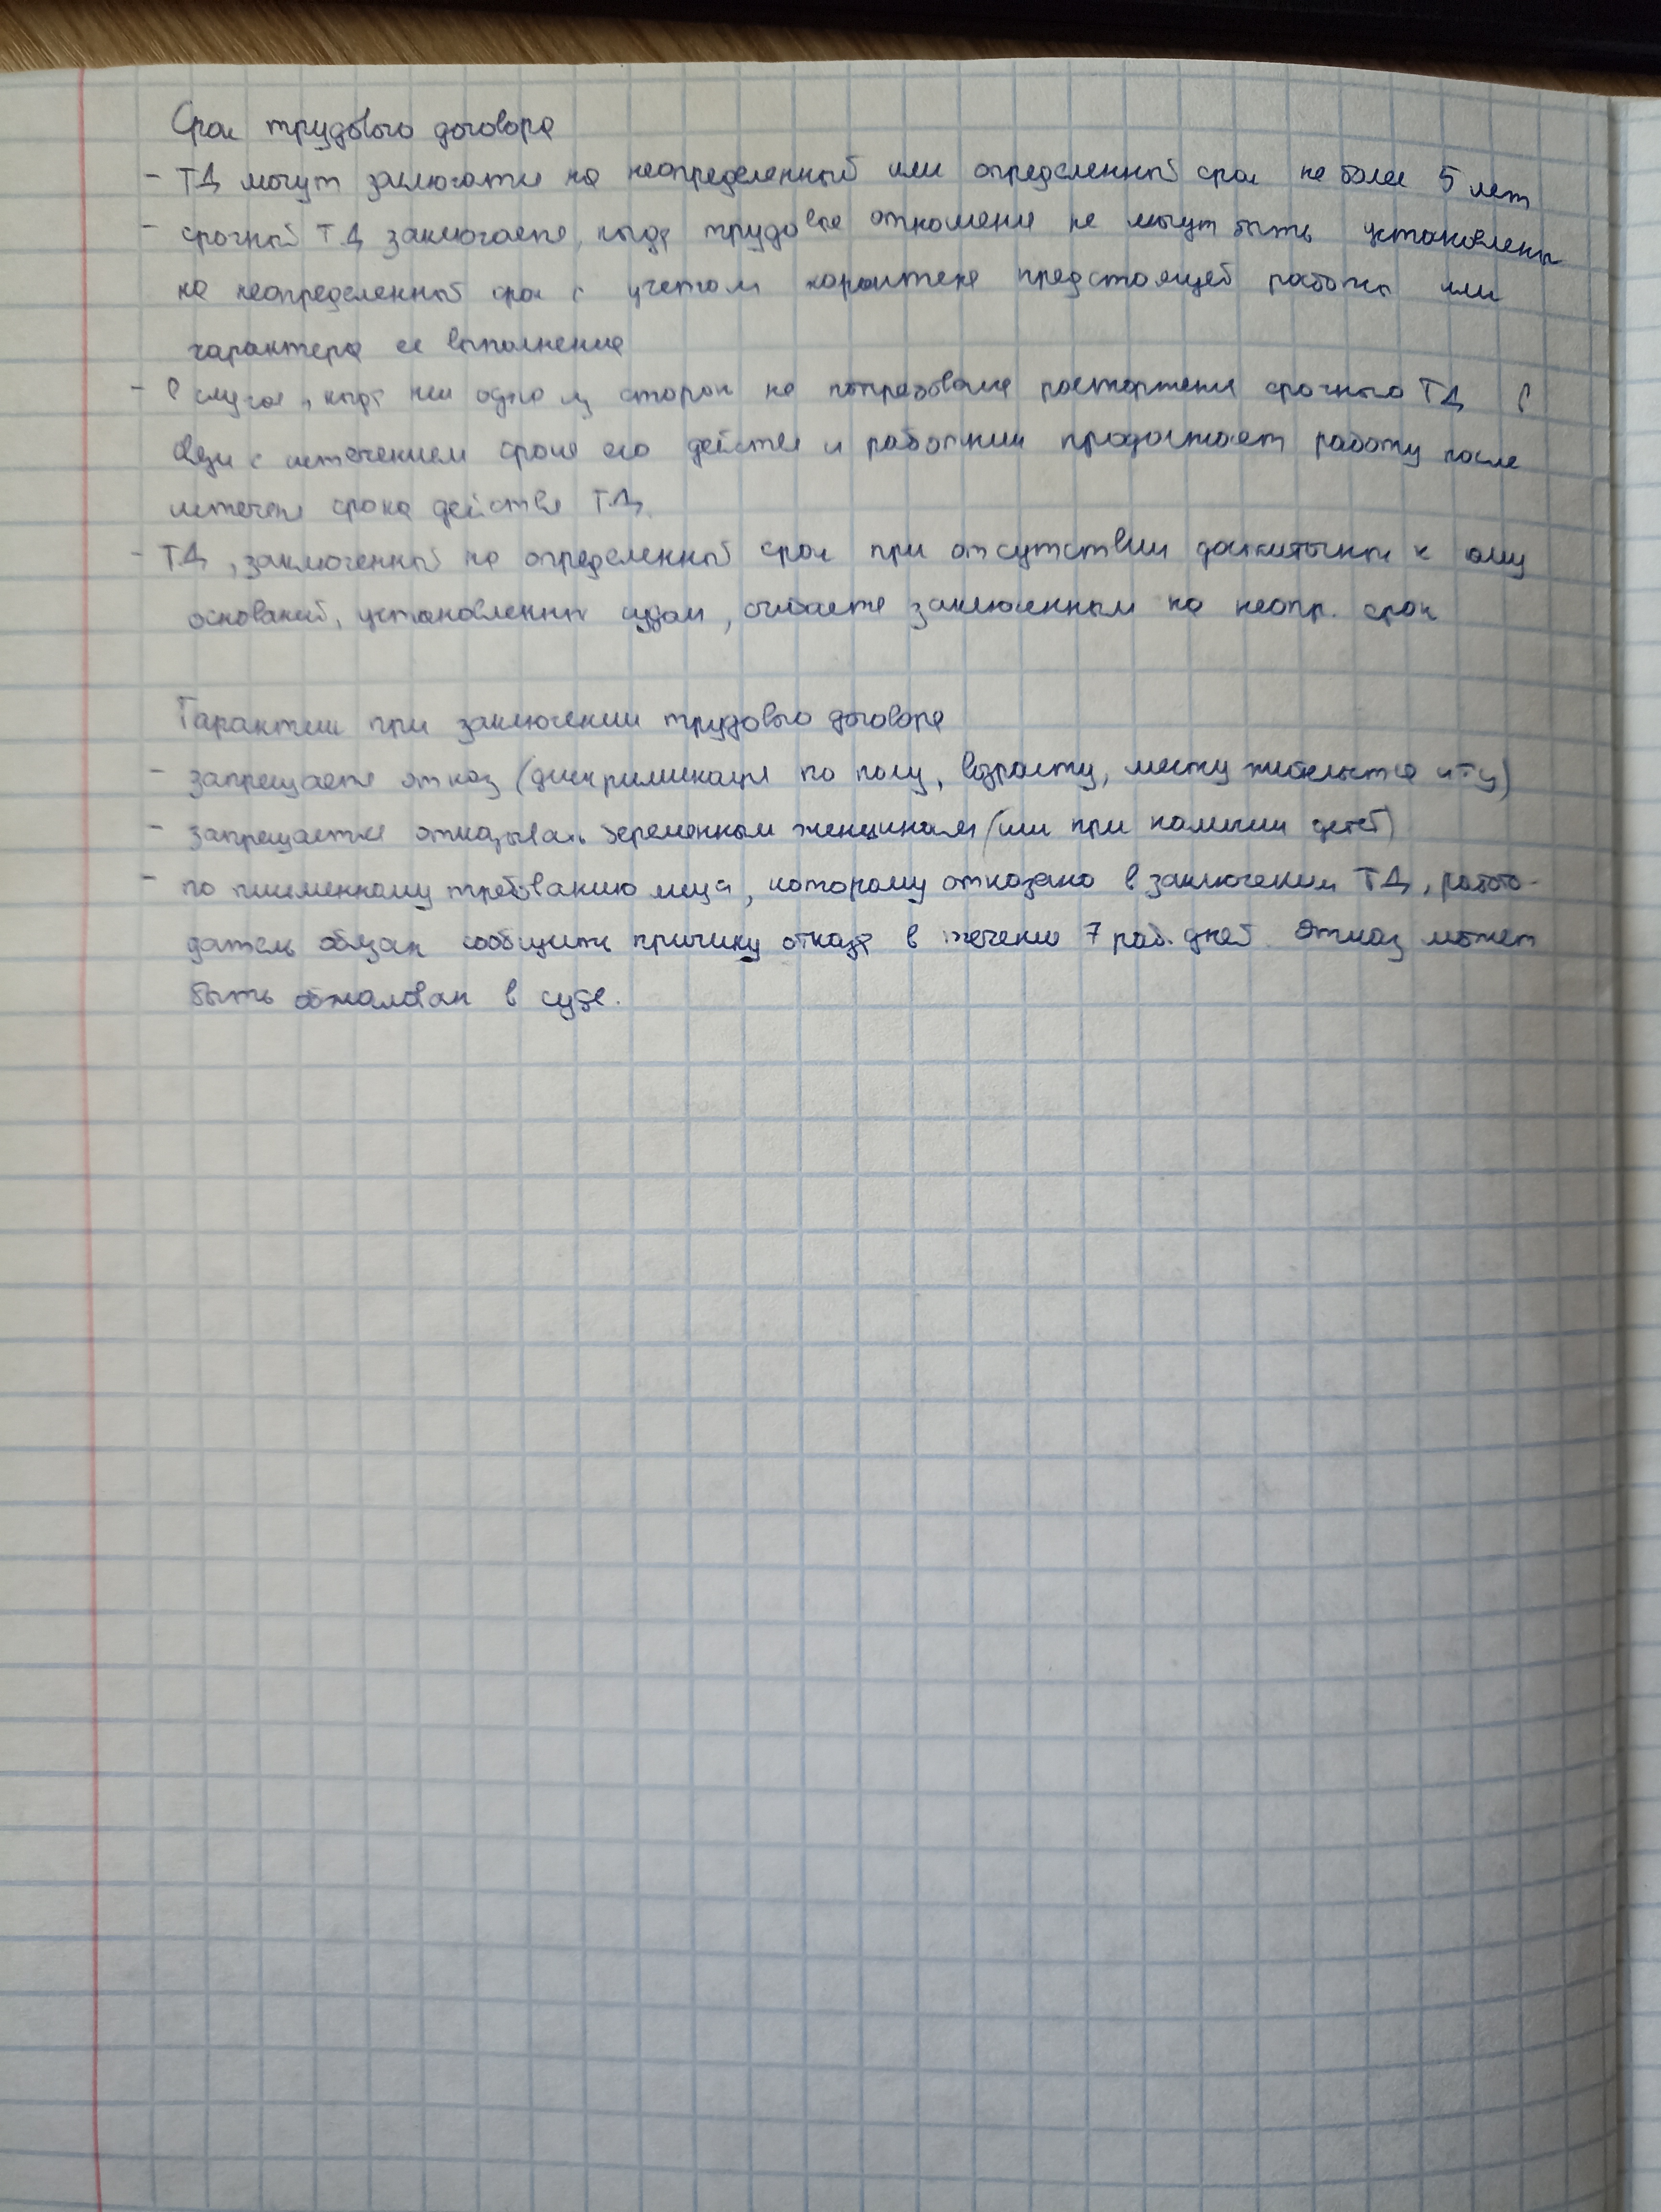 Срок трудового договора
- ТД могут заключаться на неопределенный или определенный срок не более 5 лет
- срочный ТД заключается, когда трудовые отношения не могут быть установлены
на неопределенный срок с учетом характера предстоящей работы или
характера ее выполнения
- В случае, когда ни одна из сторон не потребовала расторжения срочного ТД в
связи с истечением срока его действия и работник продолжает работу после
истечения срока действия ТД.
- ТД, заключенный на определенный срок при отсутствии достаточных к тому
оснований, установленных судом, считается заключенным на неопр. срок
Гарантии при заключении трудового договора
- запрещается отказ (дискриминация по полу, возрасту, месту жительства и т у)
- запрещается отказывать беременным женщинам (или при наличии детей)
- по письменному требованию лица, которому отказано в заключении ТД, работо-
датель обязан сообщить причину отказа в течение 7 раб. дней. Отказ может
быть обжалован в суде.